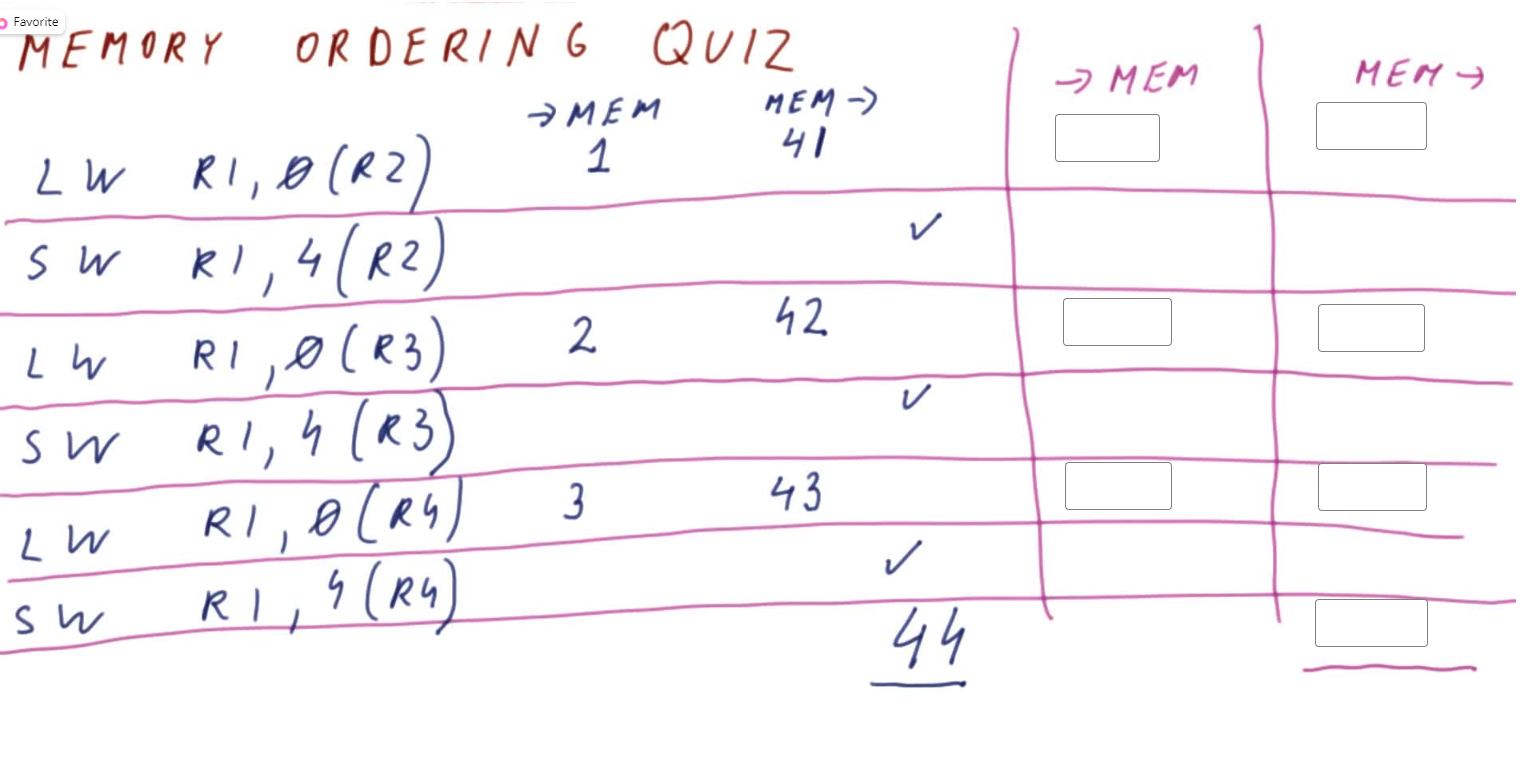 Favorite
MEMORY ORDERING QUIZ
→ MEM MEM → → MEM MEM →
LW R1, 0(R2) 1 41
SW R1, 4(R2) ✓
LW R1, 0(R3) 2 42
SW R1, 4(R3) ✓
LW R1, 0(R4) 3 43
SW R1, 4(R4) ✓
44